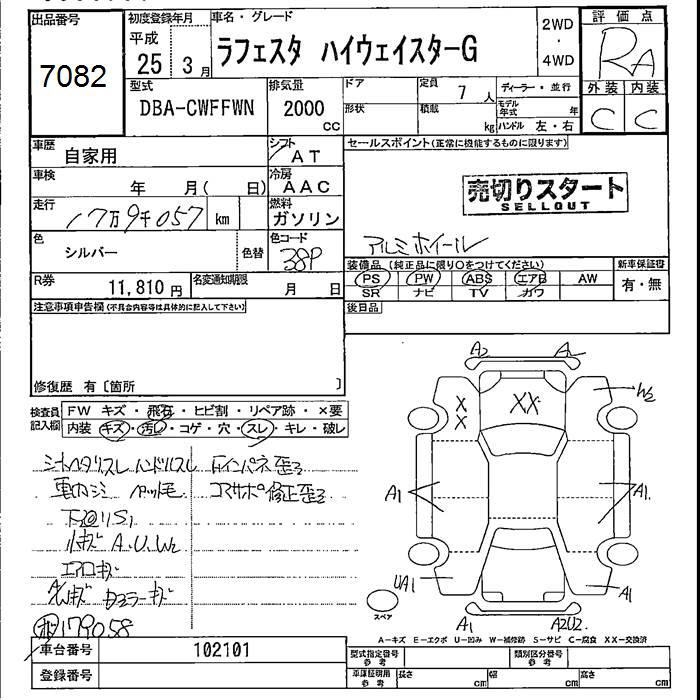 出品番号
7082
初度登録年月
平成
25 3月
車名・グレード
ラフェスタ ハイウェイスターG
2WD
・
4WD
評価点
RA
外装 内装
C C
型式
DBA-CWFFWN
排気量
2000
CC
ドア
形状
定員
7人
積載
kg
ディーラー・並行
モデル年式 年
ハンドル 左・右
車歴
自家用
シフト
AT
車検
年 月( 日)
冷房
AAC
走行
17万9千057 km
燃料
ガソリン
色
シルバー
色替
色コード
38P
R券
11,810円
名変通知期限
月 日
セールスポイント(正常に機能するものに限ります)
売切りスタート
SELLOUT
アルミホイール
装備品(純正品に限り○をつけてください)
PS PW ABS エアB AW
SR ナビ TV カワ
新車保証書
有・無
後日品
注意事項申告欄(不具合内容等は具体的に記入して下さい)
修復歴 有〔箇所 〕
検査員記入欄
FW キズ・飛石・ヒビ割・リペア跡・×要
内装 キズ・汚れ・コゲ・穴・スレ・キレ・破レ
シートヘタリスレ ハンドルスレ
インパネ歪ミ
コアサポ修正歪ミ
小キズ A.U.W2
エアロキズ
179058
車台番号
102101
登録番号
A2
XX
XX
W2
A1
A1.
UA1
A1
A1
A2U2
スペア
A−キズ E−エクボ U−凹み W−補修跡 S−サビ C−腐食 XX−交換済
型式指定番号
参考
類別区分番号
参考
車庫証明用
参考
長さ cm
幅 cm
高さ cm